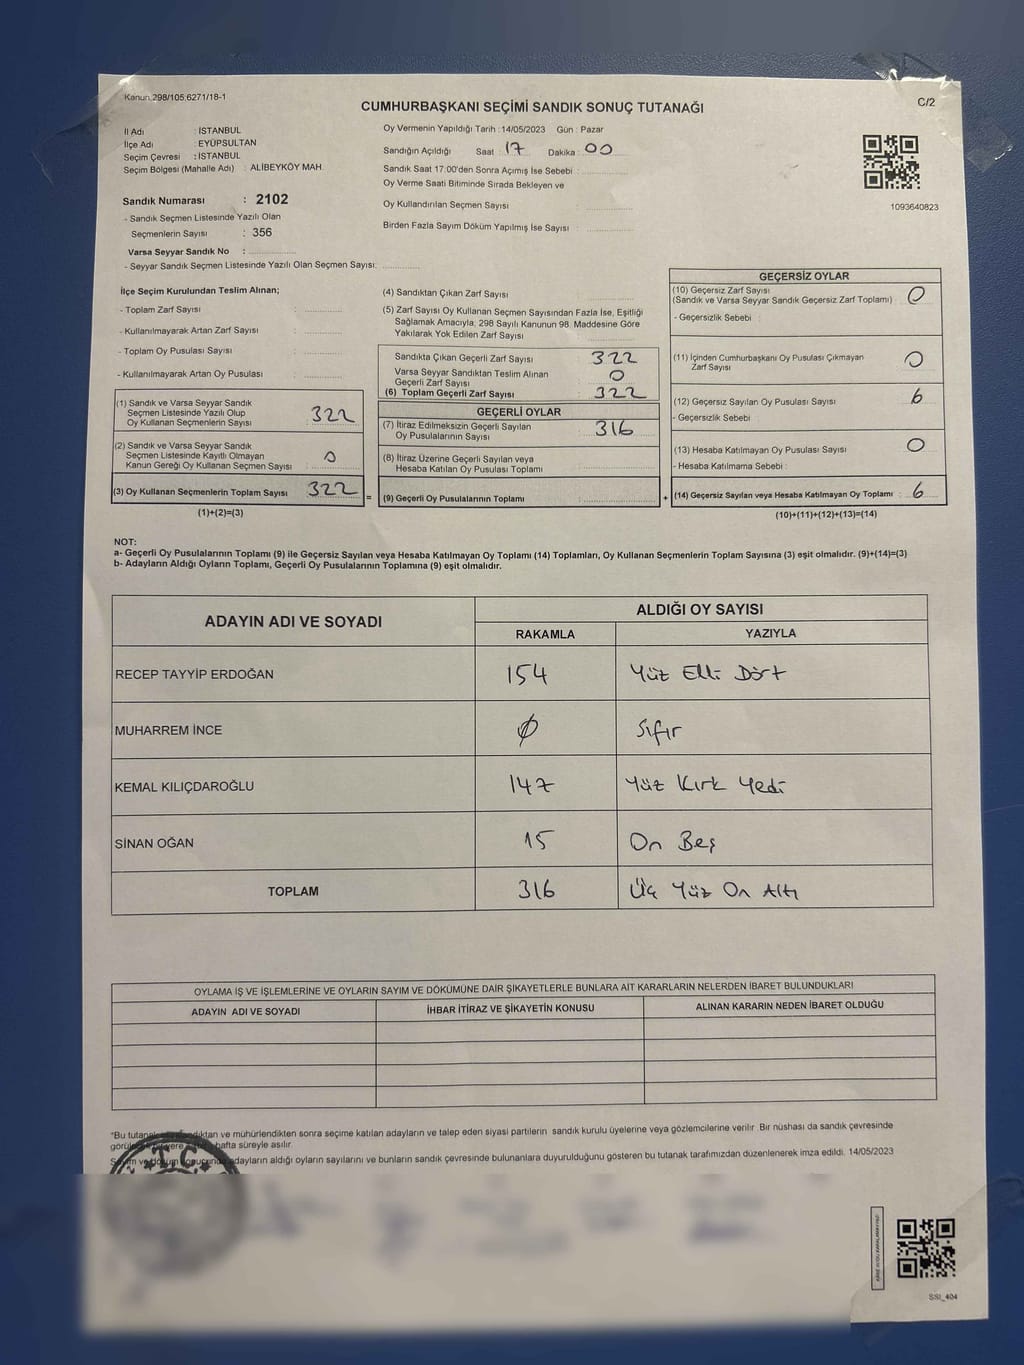 Kanun 298/105,6271/18-1
CUMHURBAŞKANI SEÇİMİ SANDIK SONUÇ TUTANAĞI
C/2
İl Adı : İSTANBUL
İlçe Adı : EYÜPSULTAN
Seçim Çevresi : İSTANBUL
Seçim Bölgesi (Mahalle Adı) : ALİBEYKÖY MAH.
Sandık Numarası : 2102
- Sandık Seçmen Listesinde Yazılı Olan
Seçmenlerin Sayısı : 356
Varsa Seyyar Sandık No :
- Seyyar Sandık Seçmen Listesinde Yazılı Olan Seçmen Sayısı:
Oy Vermenin Yapıldığı Tarih :14/05/2023 Gün : Pazar
Sandığın Açıldığı Saat 17 Dakika 00
Sandık Saat 17:00'den Sonra Açılmış İse Sebebi :
Oy Verme Saati Bitiminde Sırada Bekleyen ve
Oy Kullandırılan Seçmen Sayısı
Birden Fazla Sayım Döküm Yapılmış İse Sayısı :
1093640823
İlçe Seçim Kurulundan Teslim Alınan;
- Toplam Zarf Sayısı :
- Kullanılmayarak Artan Zarf Sayısı :
- Toplam Oy Pusulası Sayısı :
- Kullanılmayarak Artan Oy Pusulası :
(1) Sandık ve Varsa Seyyar Sandık
Seçmen Listesinde Yazılı Olup
Oy Kullanan Seçmenlerin Sayısı 322
(2) Sandık ve Varsa Seyyar Sandık
Seçmen Listesinde Kayıtlı Olmayan
Kanun Gereği Oy Kullanan Seçmen Sayısı : 0
(3) Oy Kullanan Seçmenlerin Toplam Sayısı 322 =
(1)+(2)=(3)
(4) Sandıktan Çıkan Zarf Sayısı
(5) Zarf Sayısı Oy Kullanan Seçmen Sayısından Fazla İse, Eşitliği
Sağlamak Amacıyla; 298 Sayılı Kanunun 98. Maddesine Göre
Yakılarak Yok Edilen Zarf Sayısı
Sandıkta Çıkan Geçerli Zarf Sayısı : 322
Varsa Seyyar Sandıktan Teslim Alınan
Geçerli Zarf Sayısı : 0
(6) Toplam Geçerli Zarf Sayısı : 322
GEÇERLİ OYLAR
(7) İtiraz Edilmeksizin Geçerli Sayılan
Oy Pusulalarının Sayısı : 316
(8) İtiraz Üzerine Geçerli Sayılan veya
Hesaba Katılan Oy Pusulası Toplamı
(9) Geçerli Oy Pusulalarının Toplamı : +
GEÇERSİZ OYLAR
(10) Geçersiz Zarf Sayısı
(Sandık ve Varsa Seyyar Sandık Geçersiz Zarf Toplamı) : 0
- Geçersizlik Sebebi :
(11) İçinden Cumhurbaşkanı Oy Pusulası Çıkmayan
Zarf Sayısı : 0
(12) Geçersiz Sayılan Oy Pusulası Sayısı : 6
- Geçersizlik Sebebi :
(13) Hesaba Katılmayan Oy Pusulası Sayısı : 0
- Hesaba Katılmama Sebebi :
(14) Geçersiz Sayılan veya Hesaba Katılmayan Oy Toplamı : 6
(10)+(11)+(12)+(13)=(14)
NOT:
a- Geçerli Oy Pusulalarının Toplamı (9) ile Geçersiz Sayılan veya Hesaba Katılmayan Oy Toplamı (14) Toplamları, Oy Kullanan Seçmenlerin Toplam Sayısına (3) eşit olmalıdır. (9)+(14)=(3)
b- Adayların Aldığı Oyların Toplamı, Geçerli Oy Pusulalarının Toplamına (9) eşit olmalıdır.
ADAYIN ADI VE SOYADI
ALDIĞI OY SAYISI
RAKAMLA YAZIYLA
RECEP TAYYİP ERDOĞAN 154 Yüz Elli Dört
MUHARREM İNCE 0 Sıfır
KEMAL KILIÇDAROĞLU 147 Yüz Kırk Yedi
SİNAN OĞAN 15 On Beş
TOPLAM 316 Üç Yüz On Altı
OYLAMA İŞ VE İŞLEMLERİNE VE OYLARIN SAYIM VE DÖKÜMÜNE DAİR ŞİKAYETLERLE BUNLARA AİT KARARLARIN NELERDEN İBARET BULUNDUKLARI
ADAYIN ADI VE SOYADI İHBAR İTİRAZ VE ŞİKAYETİN KONUSU ALINAN KARARIN NEDEN İBARET OLDUĞU
*Bu mühürlendikten sonra seçime katılan adayların ve talep eden siyasi partilerin sandık kurulu üyelerine veya gözlemcilerine verilir. Bir nüshası da sandık çevresinde
hafta süreyle asılır.
adayların aldığı oyların sayılarını ve bunların sandık çevresinde bulunanlara duyurulduğunu gösteren bu tutanak tarafımızdan düzenlenerek imza edildi. 14/05/2023
T.C.
SSI_404